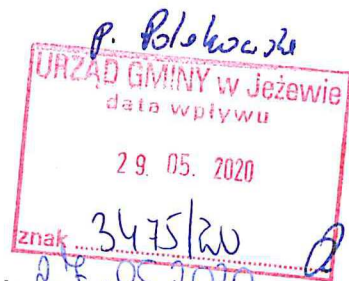 p. Polakowska
URZĄD GMINY w Jeżewie
data wpływu
29. 05. 2020
znak ..... 3475/20
27.05.2020